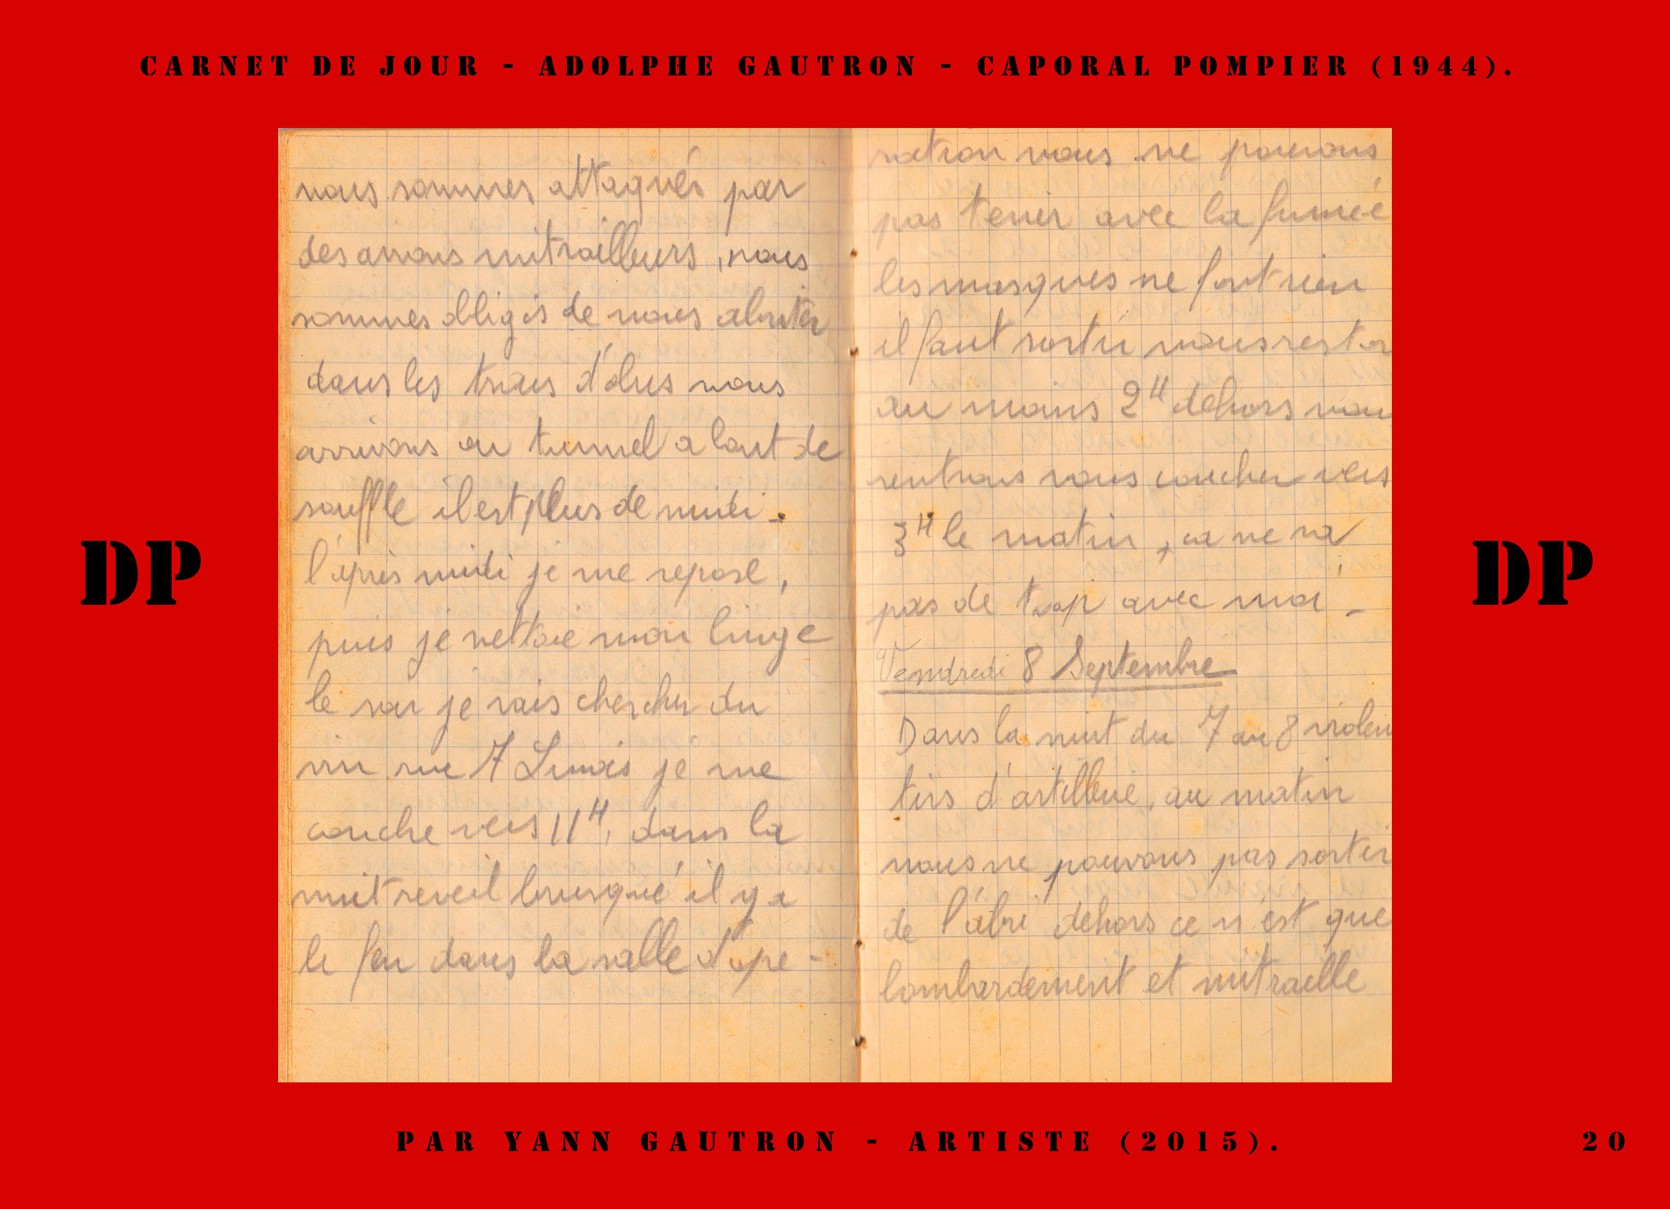 CARNET DE JOUR - ADOLPHE GAUTRON - CAPORAL POMPIER (1944).
nous sommes attaqués par
des avions mitrailleurs, nous
sommes obligés de nous abriter
dans les trous d'obus nous
arrivons au tunnel a bout de
souffle il est plus de midi -
l'après midi je me repose,
puis je nettoie mon linge
le soir je vais chercher du
vin rue 7 je me
couche vers 11H, dans la
nuit reveil brusque il y a
le feu dans la salle d'ope-
ration nous ne pouvons
pas tenir avec la fumée
les masques ne font rien
il faut sortir nous reston
au moins 2H dehors nou
rentrons nous coucher vers
3H le matin, ca ne va
pas de trop avec moi -
Vendredi 8 Septembre
Dans la nuit du 7 au 8 violen
tirs d'artillerie, au matin
nous ne pouvons pas sortir
de l'abri dehors ce n'est que
bombardement et mitraille
DP
DP
PAR YANN GAUTRON - ARTISTE (2015).
20